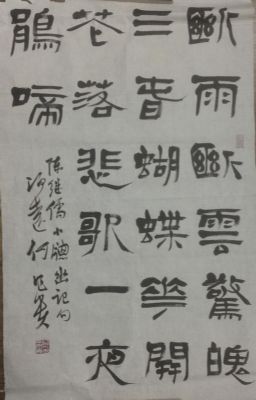 斷雨斷雲驚魄
三春蝴蝶花開
花落悲歌一夜
鵑啼
陈继儒小牕幽记句
何